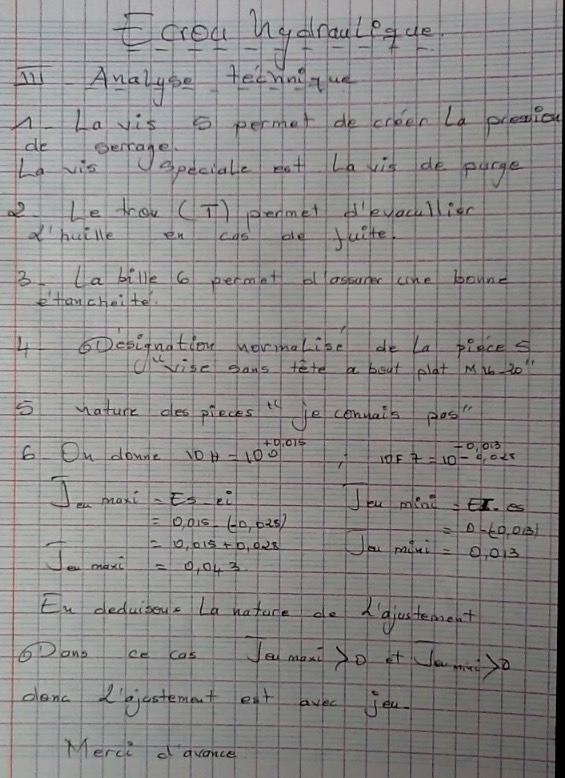 Ecrou hydraulique
III - Analyse technique
1 - La vis 5 permet de créer La pression
de serrage.
La vis spéciale est La vis de purge
2 - Le trou (T) permet d'evacullier
L'huille en cas de fuite.
3 - La bille 6 permet d'assurer une bonne
étancheité.
4 Désignation normalisé de La pièce 5
"vise sans tête a bout plat M16-20"
5 nature des pieces "je connais pas"
6. On donne 10H = 10 0 +0,015 ; 10F7 = 10 -0,013 -0,028
Jeu maxi = Es-ei Jeu mini = EI-es
= 0,015-(-0,028) = 0-(-0,013)
= 0,015+0,028 Jeu mini = 0,013
Jeu maxi = 0,043
En deduisens La nature de L'ajustement
Dans ce cas Jeu maxi >0 et Jeu mini >0
donc L'ajustement est avec jeu.
Merci d'avance